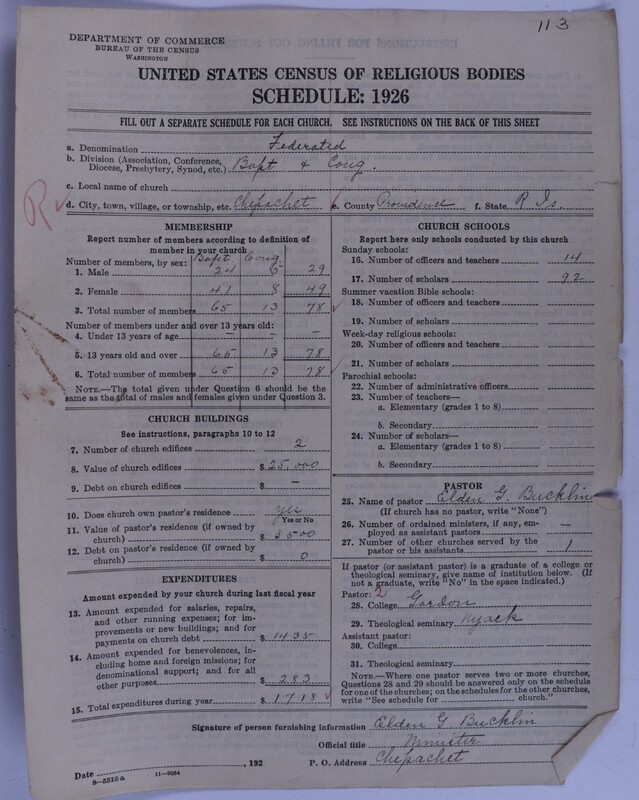 113
DEPARTMENT OF COMMERCE
BUREAU OF THE CENSUS
WASHINGTON
UNITED STATES CENSUS OF RELIGIOUS BODIES
SCHEDULE: 1926
FILL OUT A SEPARATE SCHEDULE FOR EACH CHURCH. SEE INSTRUCTIONS ON THE BACK OF THIS SHEET
a. Denomination Federated
b. Division (Association, Conference,
Diocese, Presbytery, Synod, etc.) Bapt & Cong.
c. Local name of church
R d. City, town, village, or township, etc. Chepachet e. County Providence f. State R Is.
MEMBERSHIP
Report number of members according to definition of
member in your church
Number of members, by sex: Bapt Cong
1. Male 24 5 29
2. Female 41 8 49
3. Total number of members 65 13 78
Number of members under and over 13 years old:
4. Under 13 years of age – – –
5. 13 years old and over 65 13 78
6. Total number of members 65 13 78
NOTE.—The total given under Question 6 should be the
same as the total of males and females given under Question 3.
CHURCH BUILDINGS
See instructions, paragraphs 10 to 12
7. Number of church edifices 2
8. Value of church edifices $ 25,000
9. Debt on church edifices $ –
10. Does church own pastor's residence yes
Yes or No
11. Value of pastor's residence (if owned by
church) $ 3500
12. Debt on pastor's residence (if owned by
church) $ 0
EXPENDITURES
Amount expended by your church during last fiscal year
13. Amount expended for salaries, repairs,
and other running expenses; for im-
provements or new buildings; and for
payments on church debt $ 1435
14. Amount expended for benevolences, in-
cluding home and foreign missions; for
denominational support; and for all
other purposes $ 283
15. Total expenditures during year $ 1718
CHURCH SCHOOLS
Report here only schools conducted by this church
Sunday schools:
16. Number of officers and teachers 14
17. Number of scholars 92
Summer vacation Bible schools:
18. Number of officers and teachers
19. Number of scholars
Week-day religious schools:
20. Number of officers and teachers
21. Number of scholars
Parochial schools:
22. Number of administrative officers
23. Number of teachers—
a. Elementary (grades 1 to 8)
b. Secondary
24. Number of scholars—
a. Elementary (grades 1 to 8)
b. Secondary
PASTOR
25. Name of pastor Elden G. Bucklin
(If church has no pastor, write "None")
26. Number of ordained ministers, if any, em-
ployed as assistant pastors –
27. Number of other churches served by the
pastor or his assistants 1
If pastor (or assistant pastor) is a graduate of a college or
theological seminary, give name of institution below. (If
not a graduate, write "No" in the space indicated.)
Pastor: 2
28. College Gordon
29. Theological seminary Nyack
Assistant pastor:
30. College
31. Theological seminary
NOTE.—Where one pastor serves two or more churches,
Questions 28 and 29 should be answered only on the schedule
for one of the churches; on the schedules for the other churches,
write "See schedule for church."
Signature of person furnishing information Elden G Bucklin
Official title Minister
Date , 192 P. O. Address Chepachet
8—5515a 11—9084